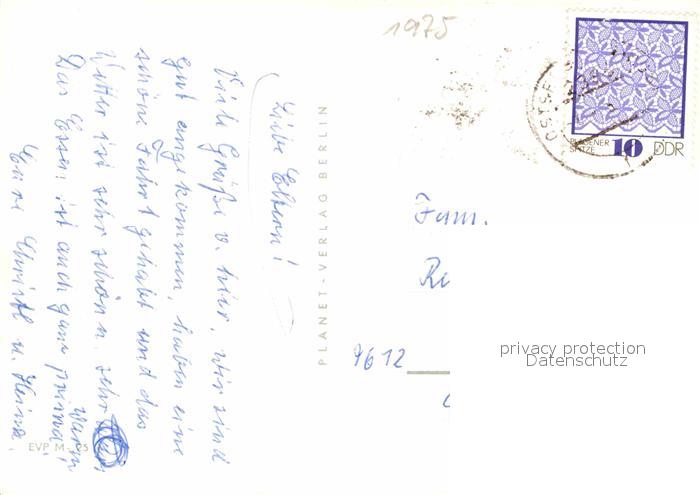 1975
Liebe Eltern!
Viele Grüße v. hier, wir sind
gut angekommen, haben eine
schöne Fahrt gehabt und das
Wetter ist sehr schön u. sehr
warm,
Das Essen ist auch ganz prima
Eure Christl u. Heinz.
EVP M -,25
PLANET-VERLAG BERLIN
PLAUENER
SPITZE
10
DDR
OSTSE
Fam.
Re
9612
privacy protection
Datenschutz